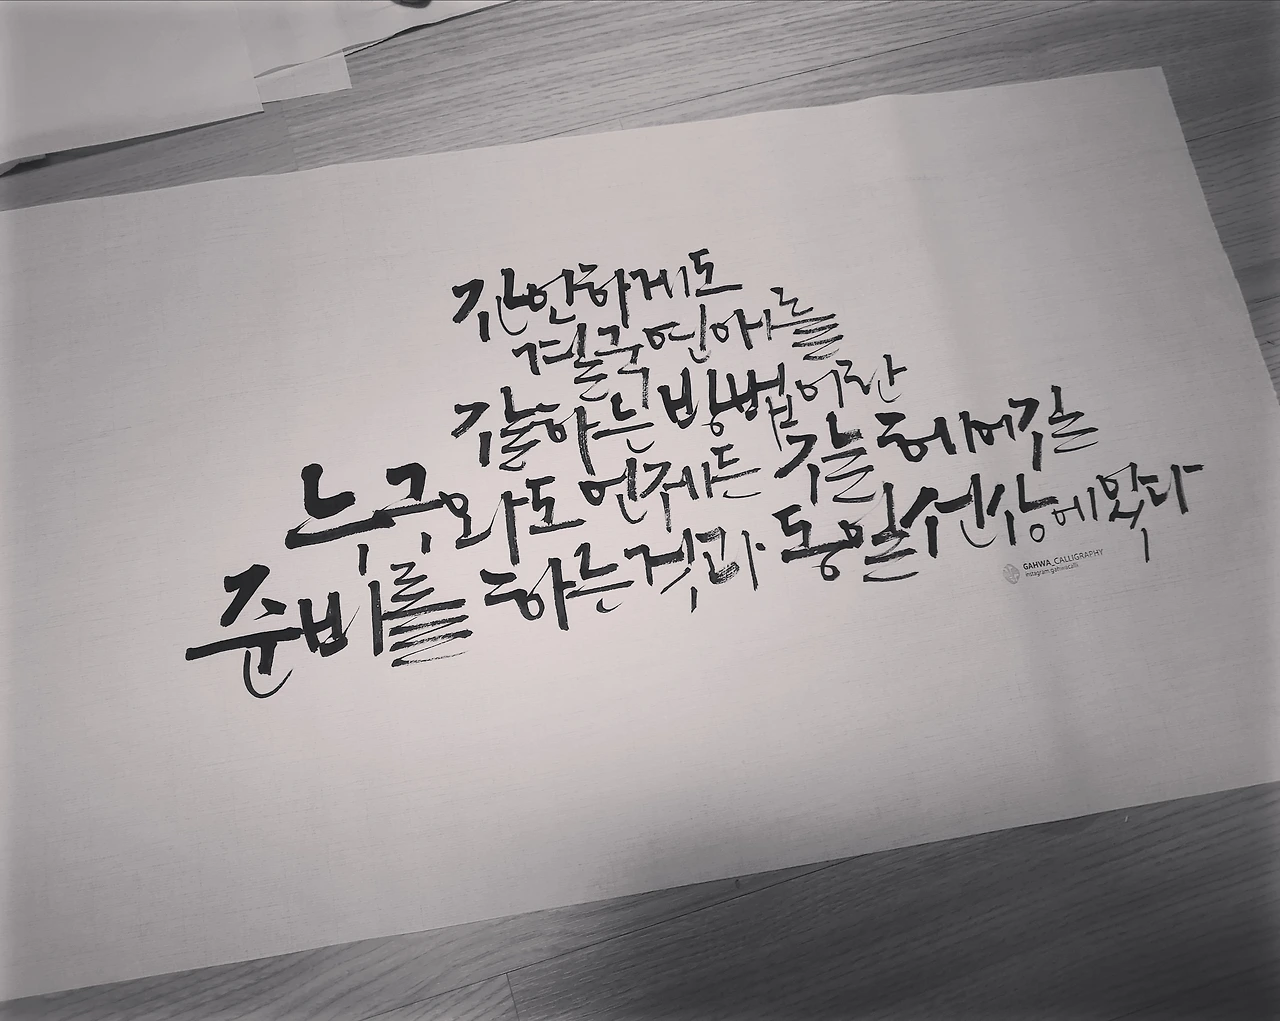 잔인하게도
결국 연애를
잘하는 방법이란
누구와도 언제든 잘 헤어질
준비를 하는 것과 동일선상에 있다
GAHWA_CALLIGRAPHY
instagram gahwacalli